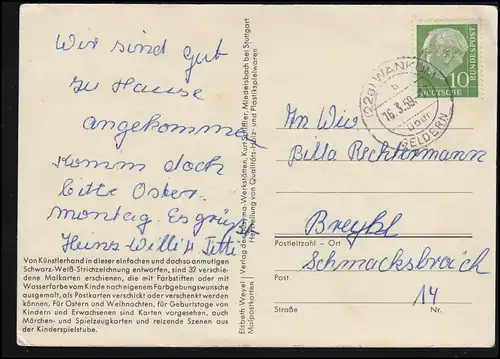 Wir sind gut
zu Hause
angekommen
Komm doch
bitte Oster-
montag. Es grüßt
Heinz-Willi u
Von Künstlerhand in dieser einfachen und doch so anmutigen
Schwarz-Weiß-Strichzeichnung entworfen, sind 32 verschie-
dene Malkarten erschienen, die mit Farbstiften oder mit
Wasserfarbe vom Kinde nach eigenem Farbgebungswunsche
ausgemalt, als Postkarten verschickt oder verschenkt werden
können. Für Ostern und Weihnachten, für Geburtstage von
Kindern und Erwachsenen sind Karten vorgesehen, auch
Märchen- und Spielzeugkarten und reizende Szenen aus
der Kinderspielstube.
Elsbeth Weyel | Verlag der Werkstätten, Kurt Schiffler, Miedelsbach bei Stuttgart
Malpostkarten | Herstellung von Qualitäts-Holz- und Plastikspielwaren
(22a) WANKUM
b
16.3.59
über
GELDERN
10
DEUTSCHE
BUNDESPOST
An
Billa
Breyell
Postleitzahl – Ort
Schmacksbroich
Post
14
Straße Nr.